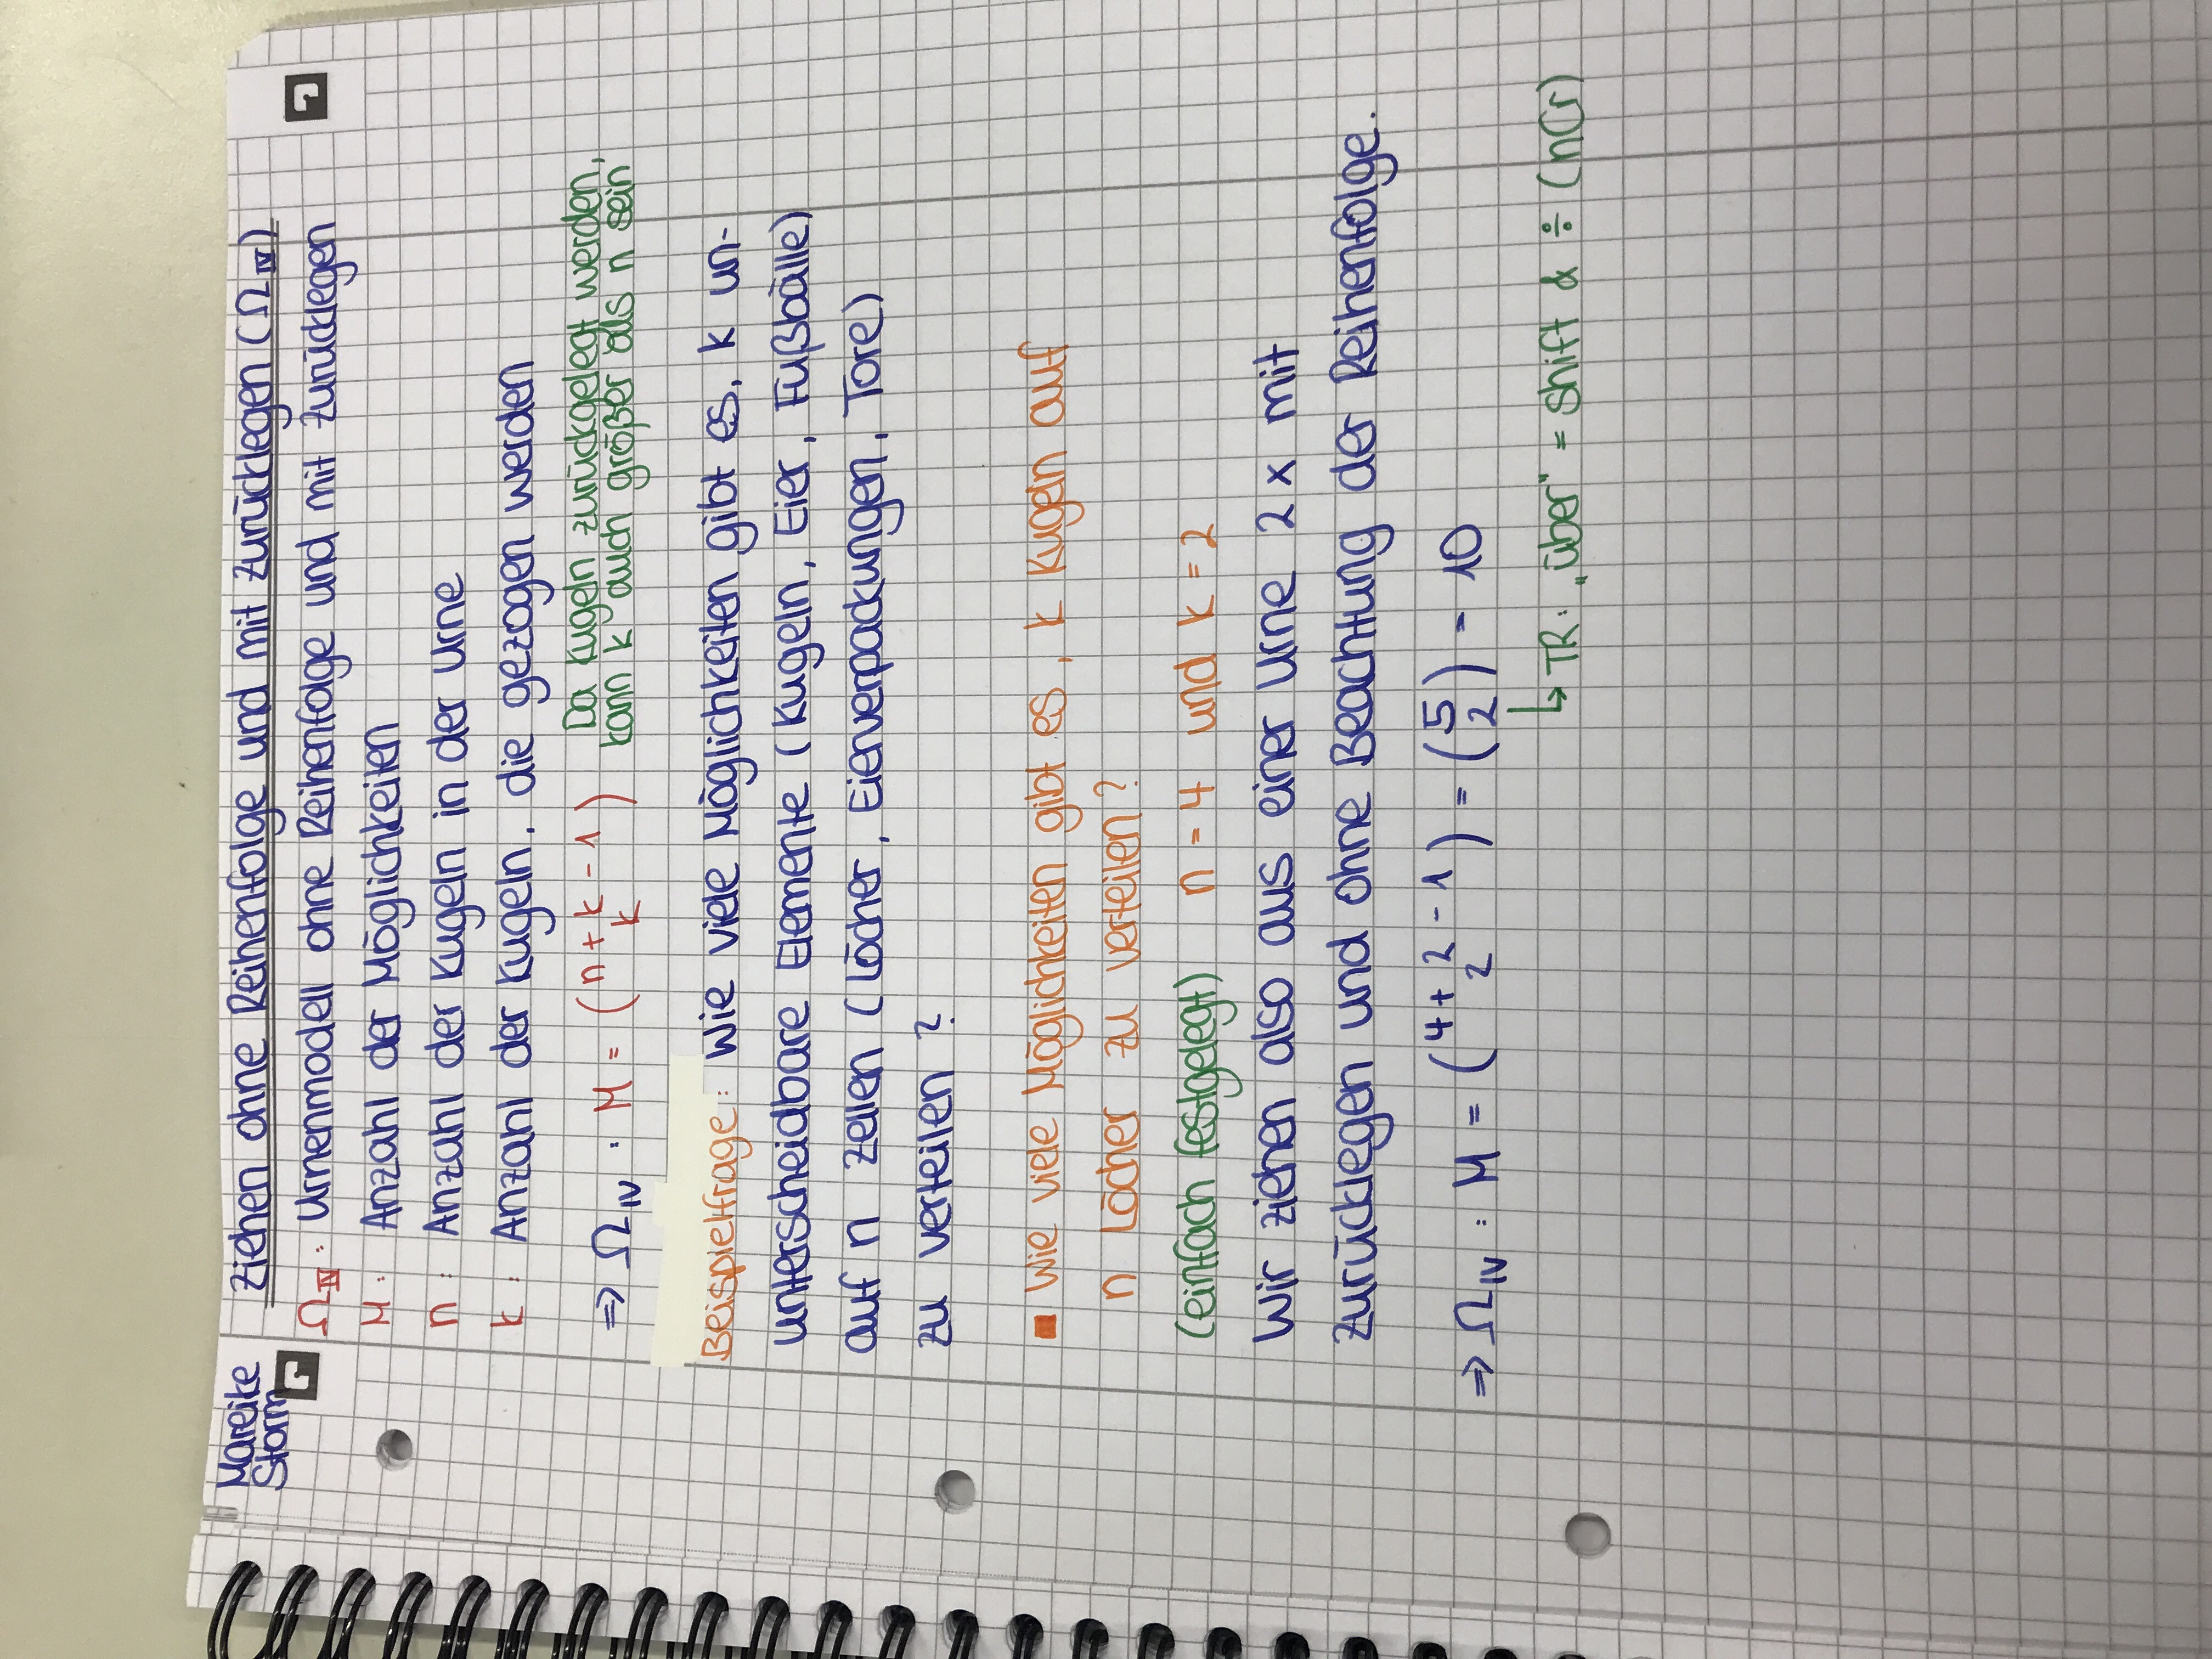 Mareike
Storm
Ziehen ohne Reihenfolge und mit zurücklegen (Ω IV)
Ω IV: Urnenmodell ohne Reihenfolge und mit zurücklegen
M: Anzahl der Möglichkeiten
n: Anzahl der Kugeln in der Urne
k: Anzahl der Kugeln, die gezogen werden
⇒ Ω IV : M = (n + k - 1 / k) Da Kugeln zurückgelegt werden,
kann k auch größer als n sein
Beispielfrage: Wie viele Möglichkeiten gibt es, k un-
unterscheidbare Elemente (Kugeln, Eier, Fußbälle)
auf n Zellen (Löcher, Eierverpackungen, Tore)
zu verteilen?
■ Wie viele Möglichkeiten gibt es, k Kugeln auf
n Löcher zu verteilen?
(einfach festgelegt) n = 4 und k = 2
Wir ziehen also aus einer Urne 2 x mit
Zurücklegen und ohne Beachtung der Reihenfolge.
⇒ Ω IV : M = (4 + 2 - 1 / 2) = (5 / 2) = 10
↳ TR: „über" = Shift & ÷ (nCr)